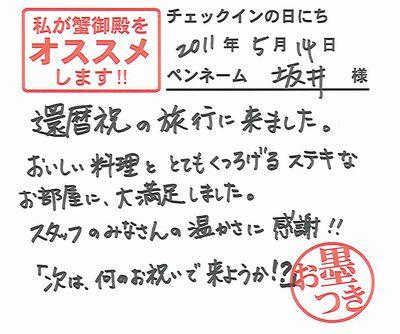 私が蟹御殿を
オススメ
します!!
チェックインの日にち
2011年5月14日
ペンネーム 坂井 様
還暦祝の旅行に来ました。
おいしい料理ととてもくつろげるステキな
お部屋に、大満足しました。
スタッフのみなさんの温かさに感謝!!
「次は、何のお祝いで来ようか!?」
お墨つき